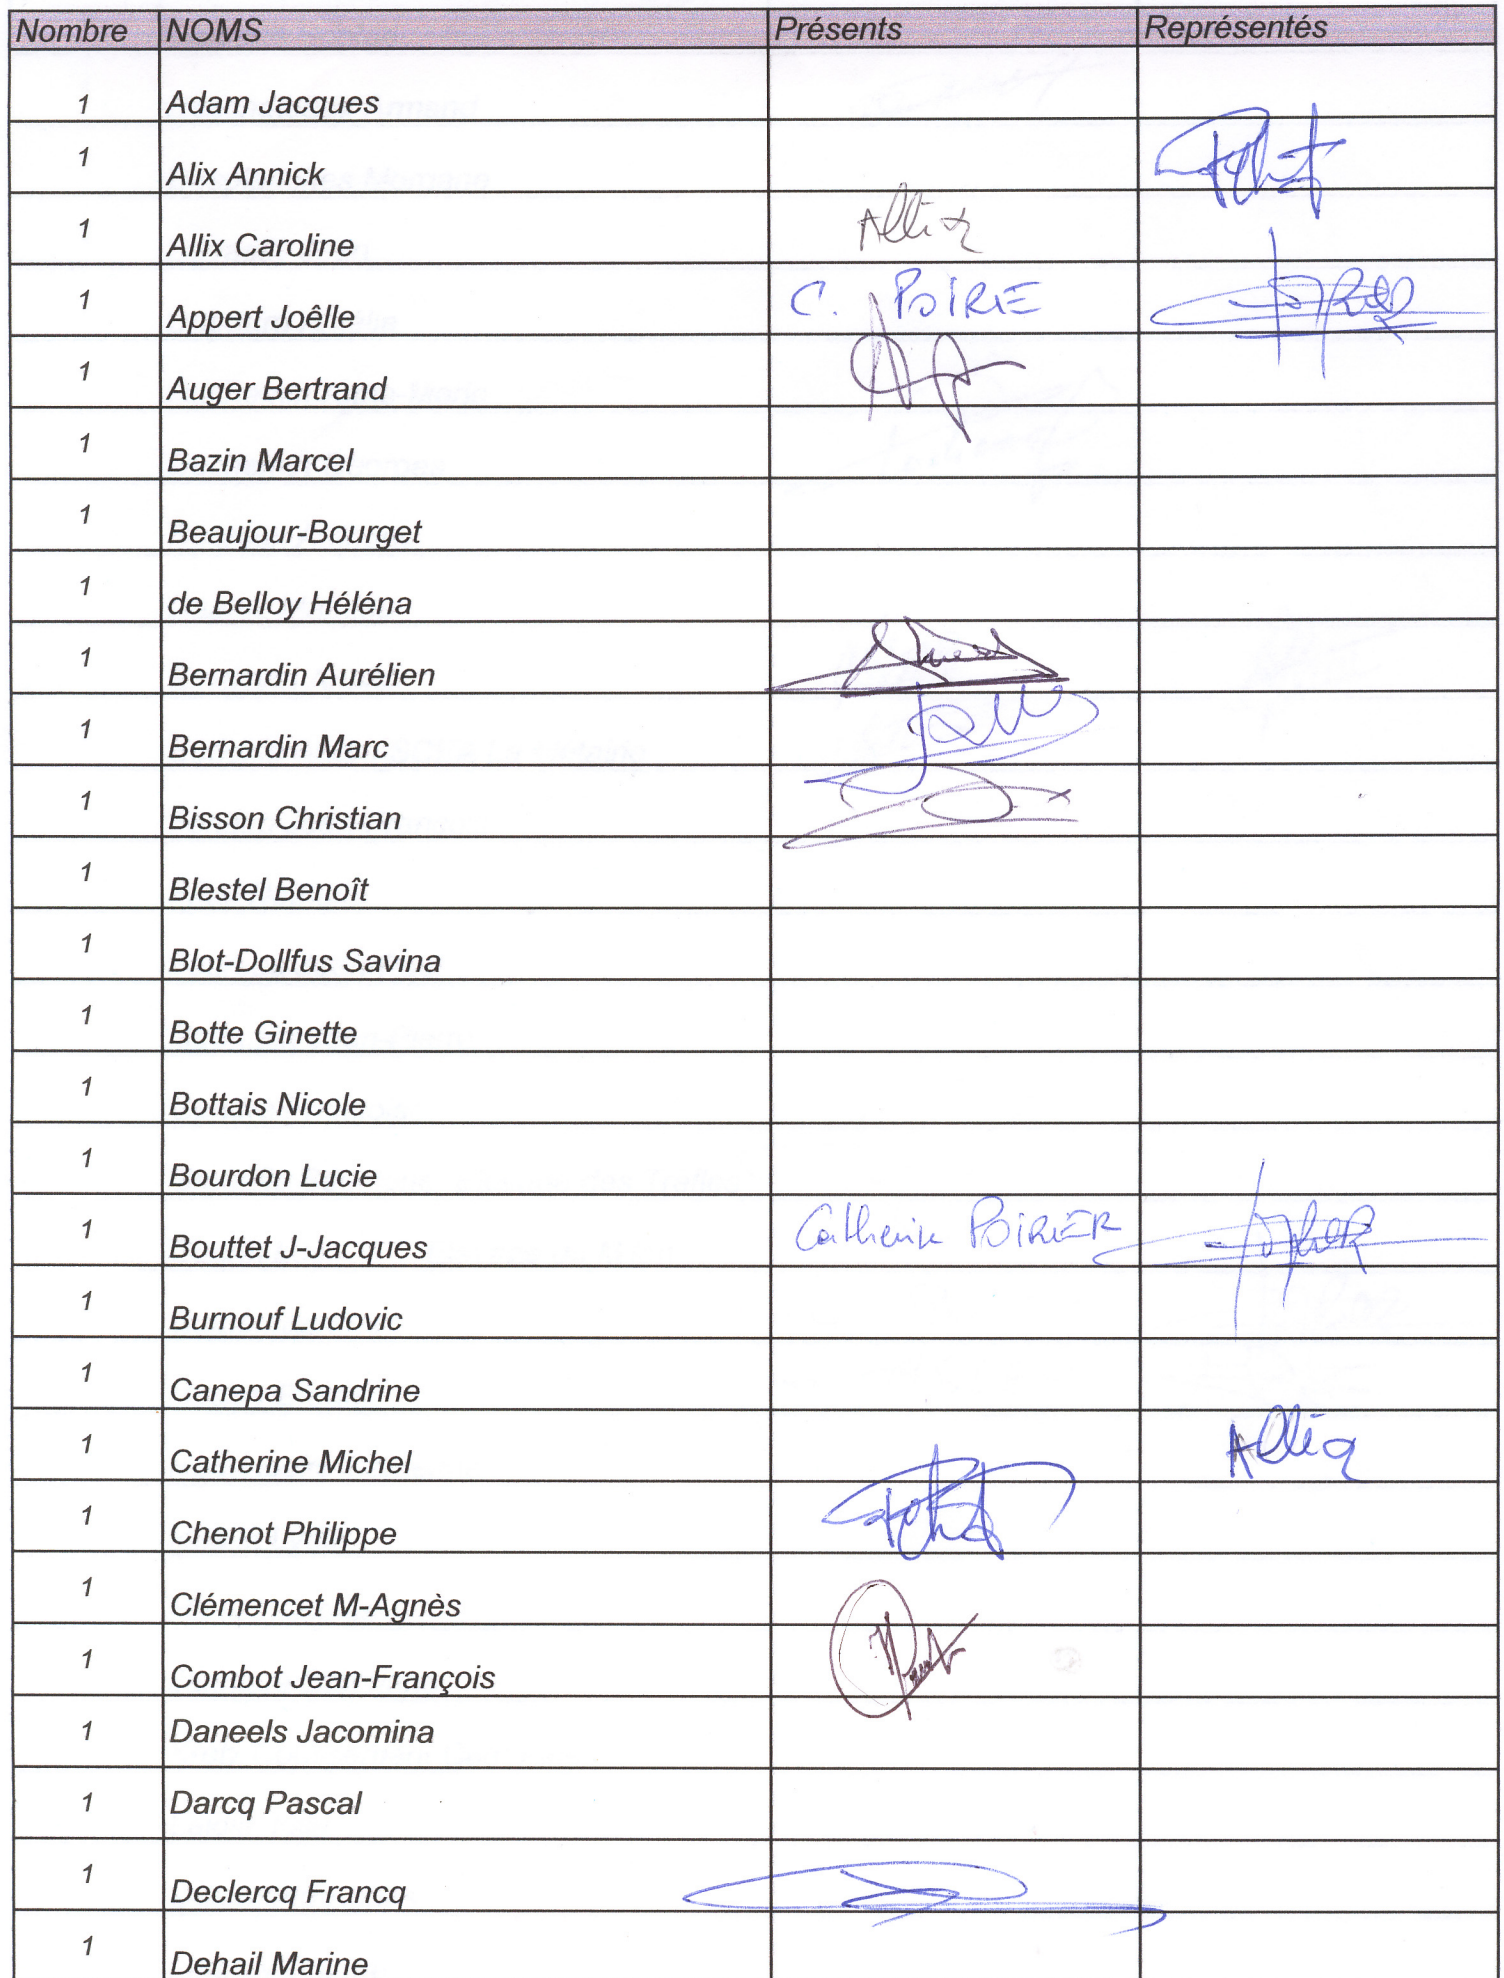 Nombre NOMS Présents Représentés
1 Adam Jacques
1 Alix Annick
1 Allix Caroline Allix
1 Appert Joêlle C. POIRIE
1 Auger Bertrand
1 Bazin Marcel
1 Beaujour-Bourget
1 de Belloy Héléna
1 Bernardin Aurélien
1 Bernardin Marc
1 Bisson Christian
1 Blestel Benoît
1 Blot-Dollfus Savina
1 Botte Ginette
1 Bottais Nicole
1 Bourdon Lucie
1 Bouttet J-Jacques Catherine POIRIER
1 Burnouf Ludovic
1 Canepa Sandrine
1 Catherine Michel Allix
1 Chenot Philippe
1 Clémencet M-Agnès
1 Combot Jean-François
1 Daneels Jacomina
1 Darcq Pascal
1 Declercq Francq
1 Dehail Marine